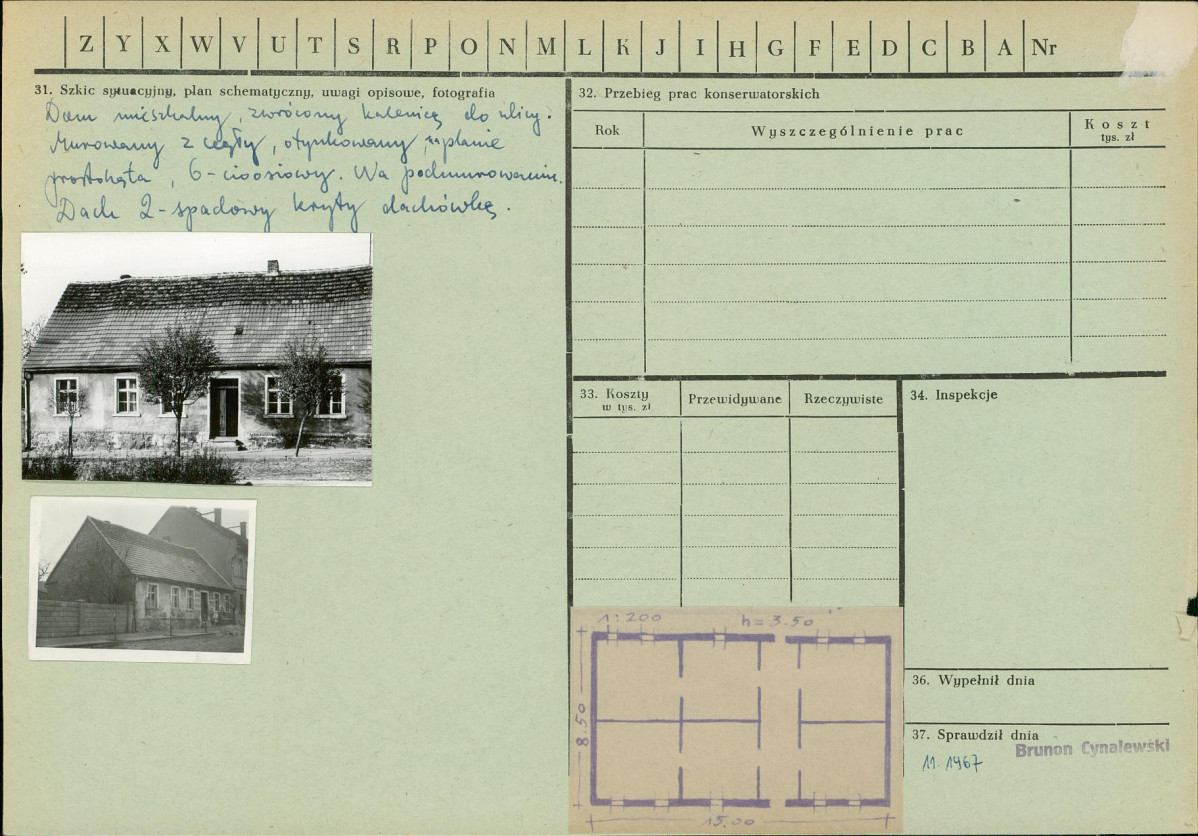 Z Y X W V U T S R P O N M L K J I H G F E D C B A Nr
31. Szkic sytuacyjny, plan schematyczny, uwagi opisowe, fotografia
Dom mieszkalny, zwrócony kalenicą do ulicy.
Murowany z cegły, otynkowany, na planie
prostokąta, 6-cioosiowy. Na podmurowaniu.
Dach 2-spadowy kryty dachówką.
32. Przebieg prac konserwatorskich
Rok
Wyszczególnienie prac
Koszt
tys. zł
33. Koszty
w tys. zł
Przewidywane
Rzeczywiste
34. Inspekcje
1:200
h=3.50
8.50
15.00
36. Wypełnił dnia
37. Sprawdził dnia
Brunon Cynalewski
11. 1967